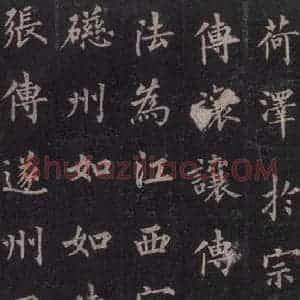 荷澤於宗
傳讓讓傳
法為江西
礠州如如
張傳遂州
Shufaziliao.COM